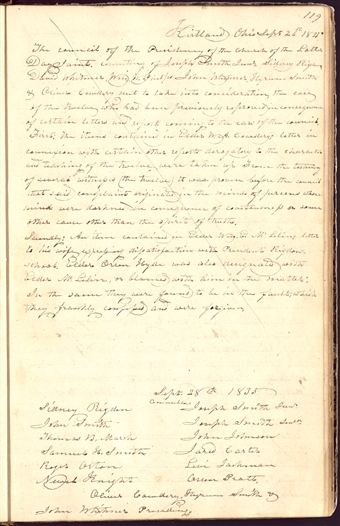 119
Kirtland, Ohio Sept. 26th 1835
The council of the Presidency of the Church of the Latter
Day Saints, consisting of Joseph Smith Junr. Sidney Rigdon
David Whitmer W. W. Phelps John Whitmer Hyrum Smith
& Oliver Cowdery met to take into consideration the case
of the twelve, who had been previously reproved in consequence
of certain letters and reports coming to the ears of the council
First, the items contained in Elder W. A. Cowdery letter in
connexion with certain other reports derogatory to the character
and teaching of the twelve, were taken up & from the testimony
of several witnesses (the twelve) it was proven before the council
that said complaints originated in the minds of persons whose
minds were darkened in consequence of covetousness or some
other cause other than the spirit of truth,
Secondly: An item contained in Elder Wm. E. M. Lellin letter
to his wife expressing dissatisfaction with President Rigdon
school, Elder Orson Hyde was also designated with
Elder M. Lellin, or blamed with him in the matter,
In the same they were found to be in the fault, which
they frankly confessed and were forgiven
Sept. 28th 1835
Councillors
Sidney Rigdon Joseph Smith Junr.
John Smith Joseph Smith Senr.
Thomas B. Marsh John Johnson
Samuel H. Smith Jared Carter
Roger Orton Levi Jackman
Newel Knight Orson Pratt
Oliver Cowdery, Hyrum Smith &
John Whitmer Presiding